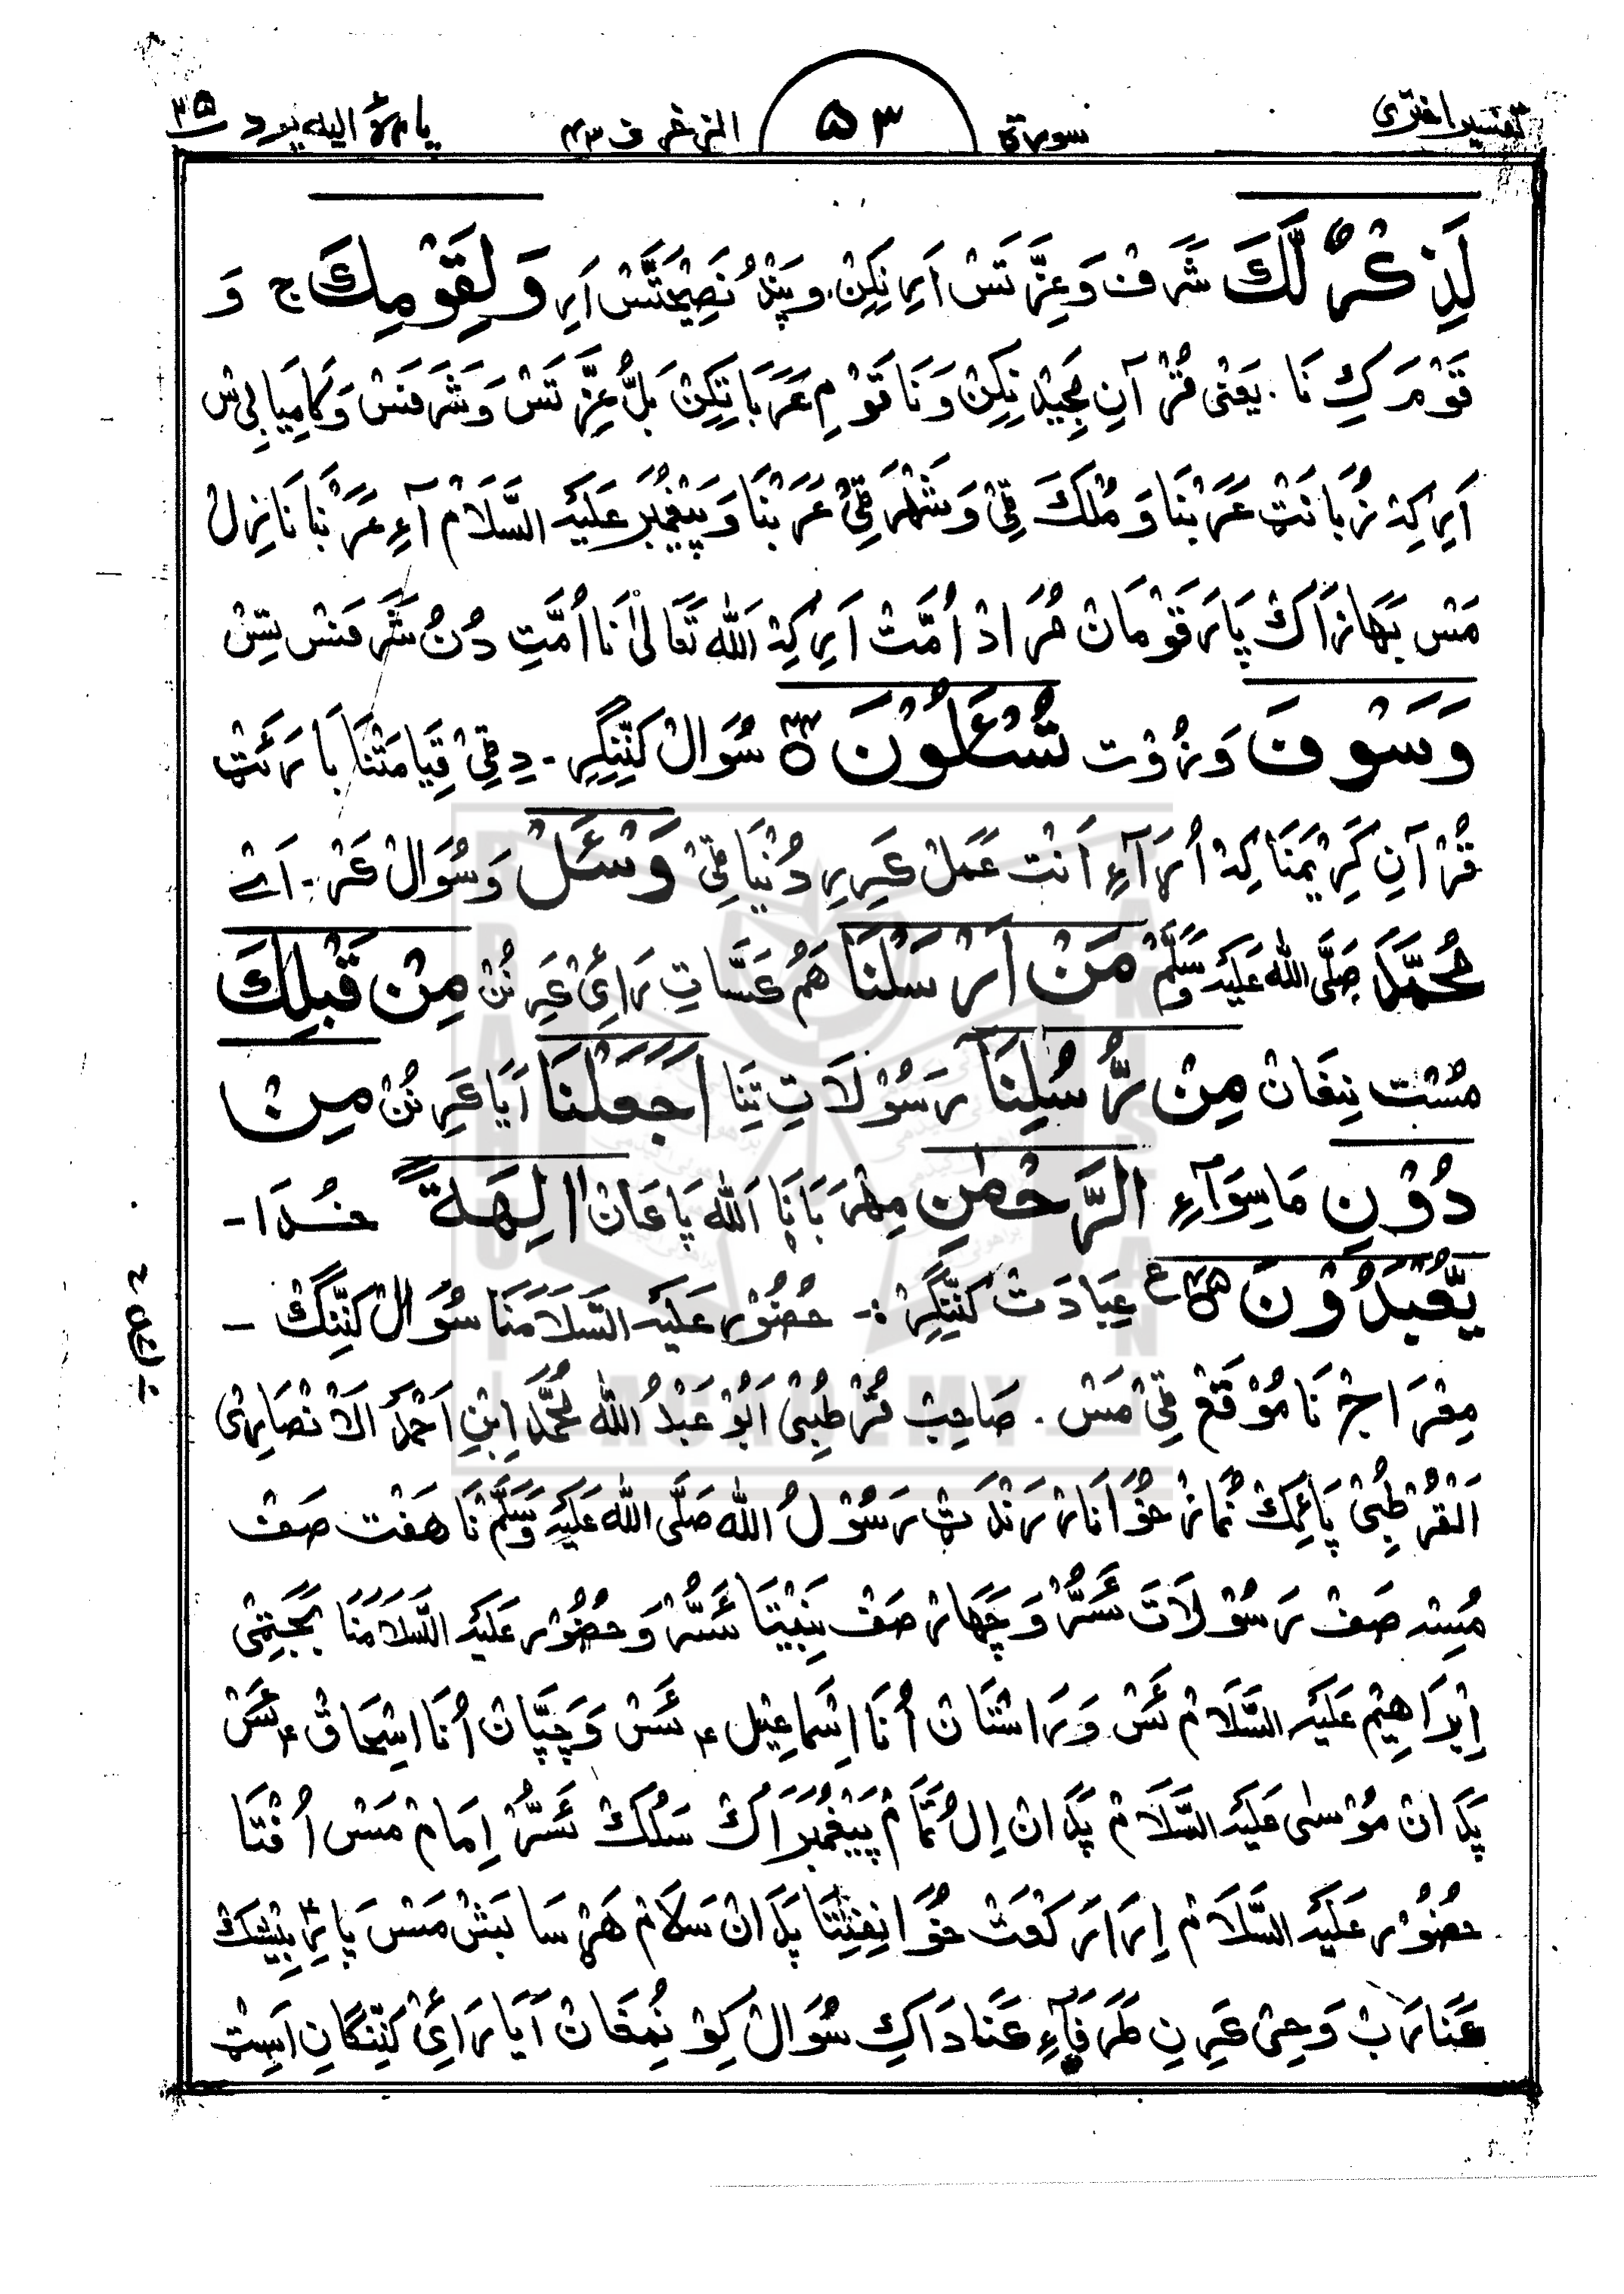 تفسیر اختری سورة ۵۳ الزخرف ۴۳ پارهٔ الیه یرد ۲۵
لَذِكْرٌ لَّكَ شَرَفْ وَعِزَّتَسْ اَرِ نِكِنْ. و پَنْدُ نَصِیْحَتَسْ اَرِ وَلِقَوْمِكَ ج وَ
قَوْمَ كِ نَا. یَعْنٰی قُرْآنِ مَجِیْد نِكِنْ وَنَا قَوْمِ عَرَبَا تِكِنْ بَلُّ عِزَّتَسْ وَشَرَفَسْ وَكَامِیَابِیْس
اَرِ كِهْ زُبَانَتْ عَرَبْنَا وَمُلْكَ ٹِیْ وَشَهْرَ ٹِیْ عَرَبْنَا وَپَیْغَمْبَر عَلَیْهِ السَّلَامْ آءِ عَرَبْنَا نَازِلْ
مَسْ بَهَازَاكْ پَارَ قَوْمَانْ مُرَادْ اُمَّتْ اَرِ كِهْ اَللّٰه تَعَالٰی نَا اُمَّتِ دُنُ شَرَفَسْ تِسْ
وَسَوْفَ وَزُوْت تُسْـَٔلُوْنَ ۴۴ سُوَالْ كَنِّنِگِر - دِ ٹِیْ قِیَامَتْنَا بَارَئَتْ
قُرْآنِ كَرِیْمَنَا كِهْ اُرَاءِ اَنْت عَمَلْ كَرِیرِ دُنْیَا ٹِیْ وَسْـَٔلْ وَسُوَالْ كَرْ - اَے
مُحَمَّدْ صَلَّی اللّٰهُ عَلَیْهِ وَسَلَّمْ مَنْ اَرْسَلْنَا هَمُ كَسَّاتِ رَائِیْ كَرِ نُنْ مِنْ قَبْلِكَ
مُسْت نِغَانْ مِنْ رُّسُلِنَا رَسُوْلَاتِ تِنَا اَجَعَلْنَا اَیَا كَرِ نُنْ مِنْ
دُوْنِ مَاسِوَآءِ الرَّحْمٰنِ مِهْرَبَانَا اَللّٰه پَاغَانْ اٰلِهَةً خُدَا -
یُّعْبَدُوْنَ ۴۵ ع عِبَادَتْ كَنِّنِگِرْ :- حُضُوْر عَلَیْهِ السَّلَامْنَا سُوَالْ كَنِّنِگْ -
مِعْرَاجْ نَا مُوْقَعْ ٹِیْ مَسْ. صَاحِبْ قُرْطُبِیْ اَبُوْ عَبْدُ اللّٰه مُحَمَّد اِبْنِ اَحْمَدْ اَلْاَنْصَارِیْ
اَلْقُرْطُبِیْ پَائِكْ نُمَازْ خُوَانَارْ رَنْدَتْ رَسُوْلُ اللّٰه صَلَّی اللّٰه عَلَیْهِ وَسَلَّمْ نَا هَفْت صَفْ
مُسِهْ صَفْ رَسُوْلَاتَ ئَسُّرْ وَچَهَارْ صَفْ نَبِیْتَا ئَسُّرْ وَحُضُوْر عَلَیْهِ السَّلَامْنَا بَجَّتِیْ
اِبْرَاهِیْم عَلَیْهِ السَّلَامْ ئَسْ وَرَاسْتَانْ اُنَا اِسْمَاعِیْل ؑ ئَسْ وَچَپَّانْ اُنَا اِسْحَاقْ ؑ ئَسْ
پَدَانْ مُوْسٰی عَلَیْهِ السَّلَامْ پَدَانْ اِلُ تَمَامْ پَیْغَمْبَرَاكْ سَلُكْ ئَسُّرْ اِمَامْ مَسْ اُفْتَا
حُضُوْر عَلَیْهِ السَّلَامْ اِرَارَ كْعَتْ خُوَانِفِتَا پَدَانْ سَلَامْ هَرْسَا بَشْ مَسْ پَارِ بِیْشَكْ
كَنَا رَبْ وَحِیْ كَرِنِ طَرَفَآءِ كَنَا دَاكِ سُوَالْ كِوْ نُمْغَانْ اَیَا رَائِیْ كَنِّنِگَانِ اَسِت